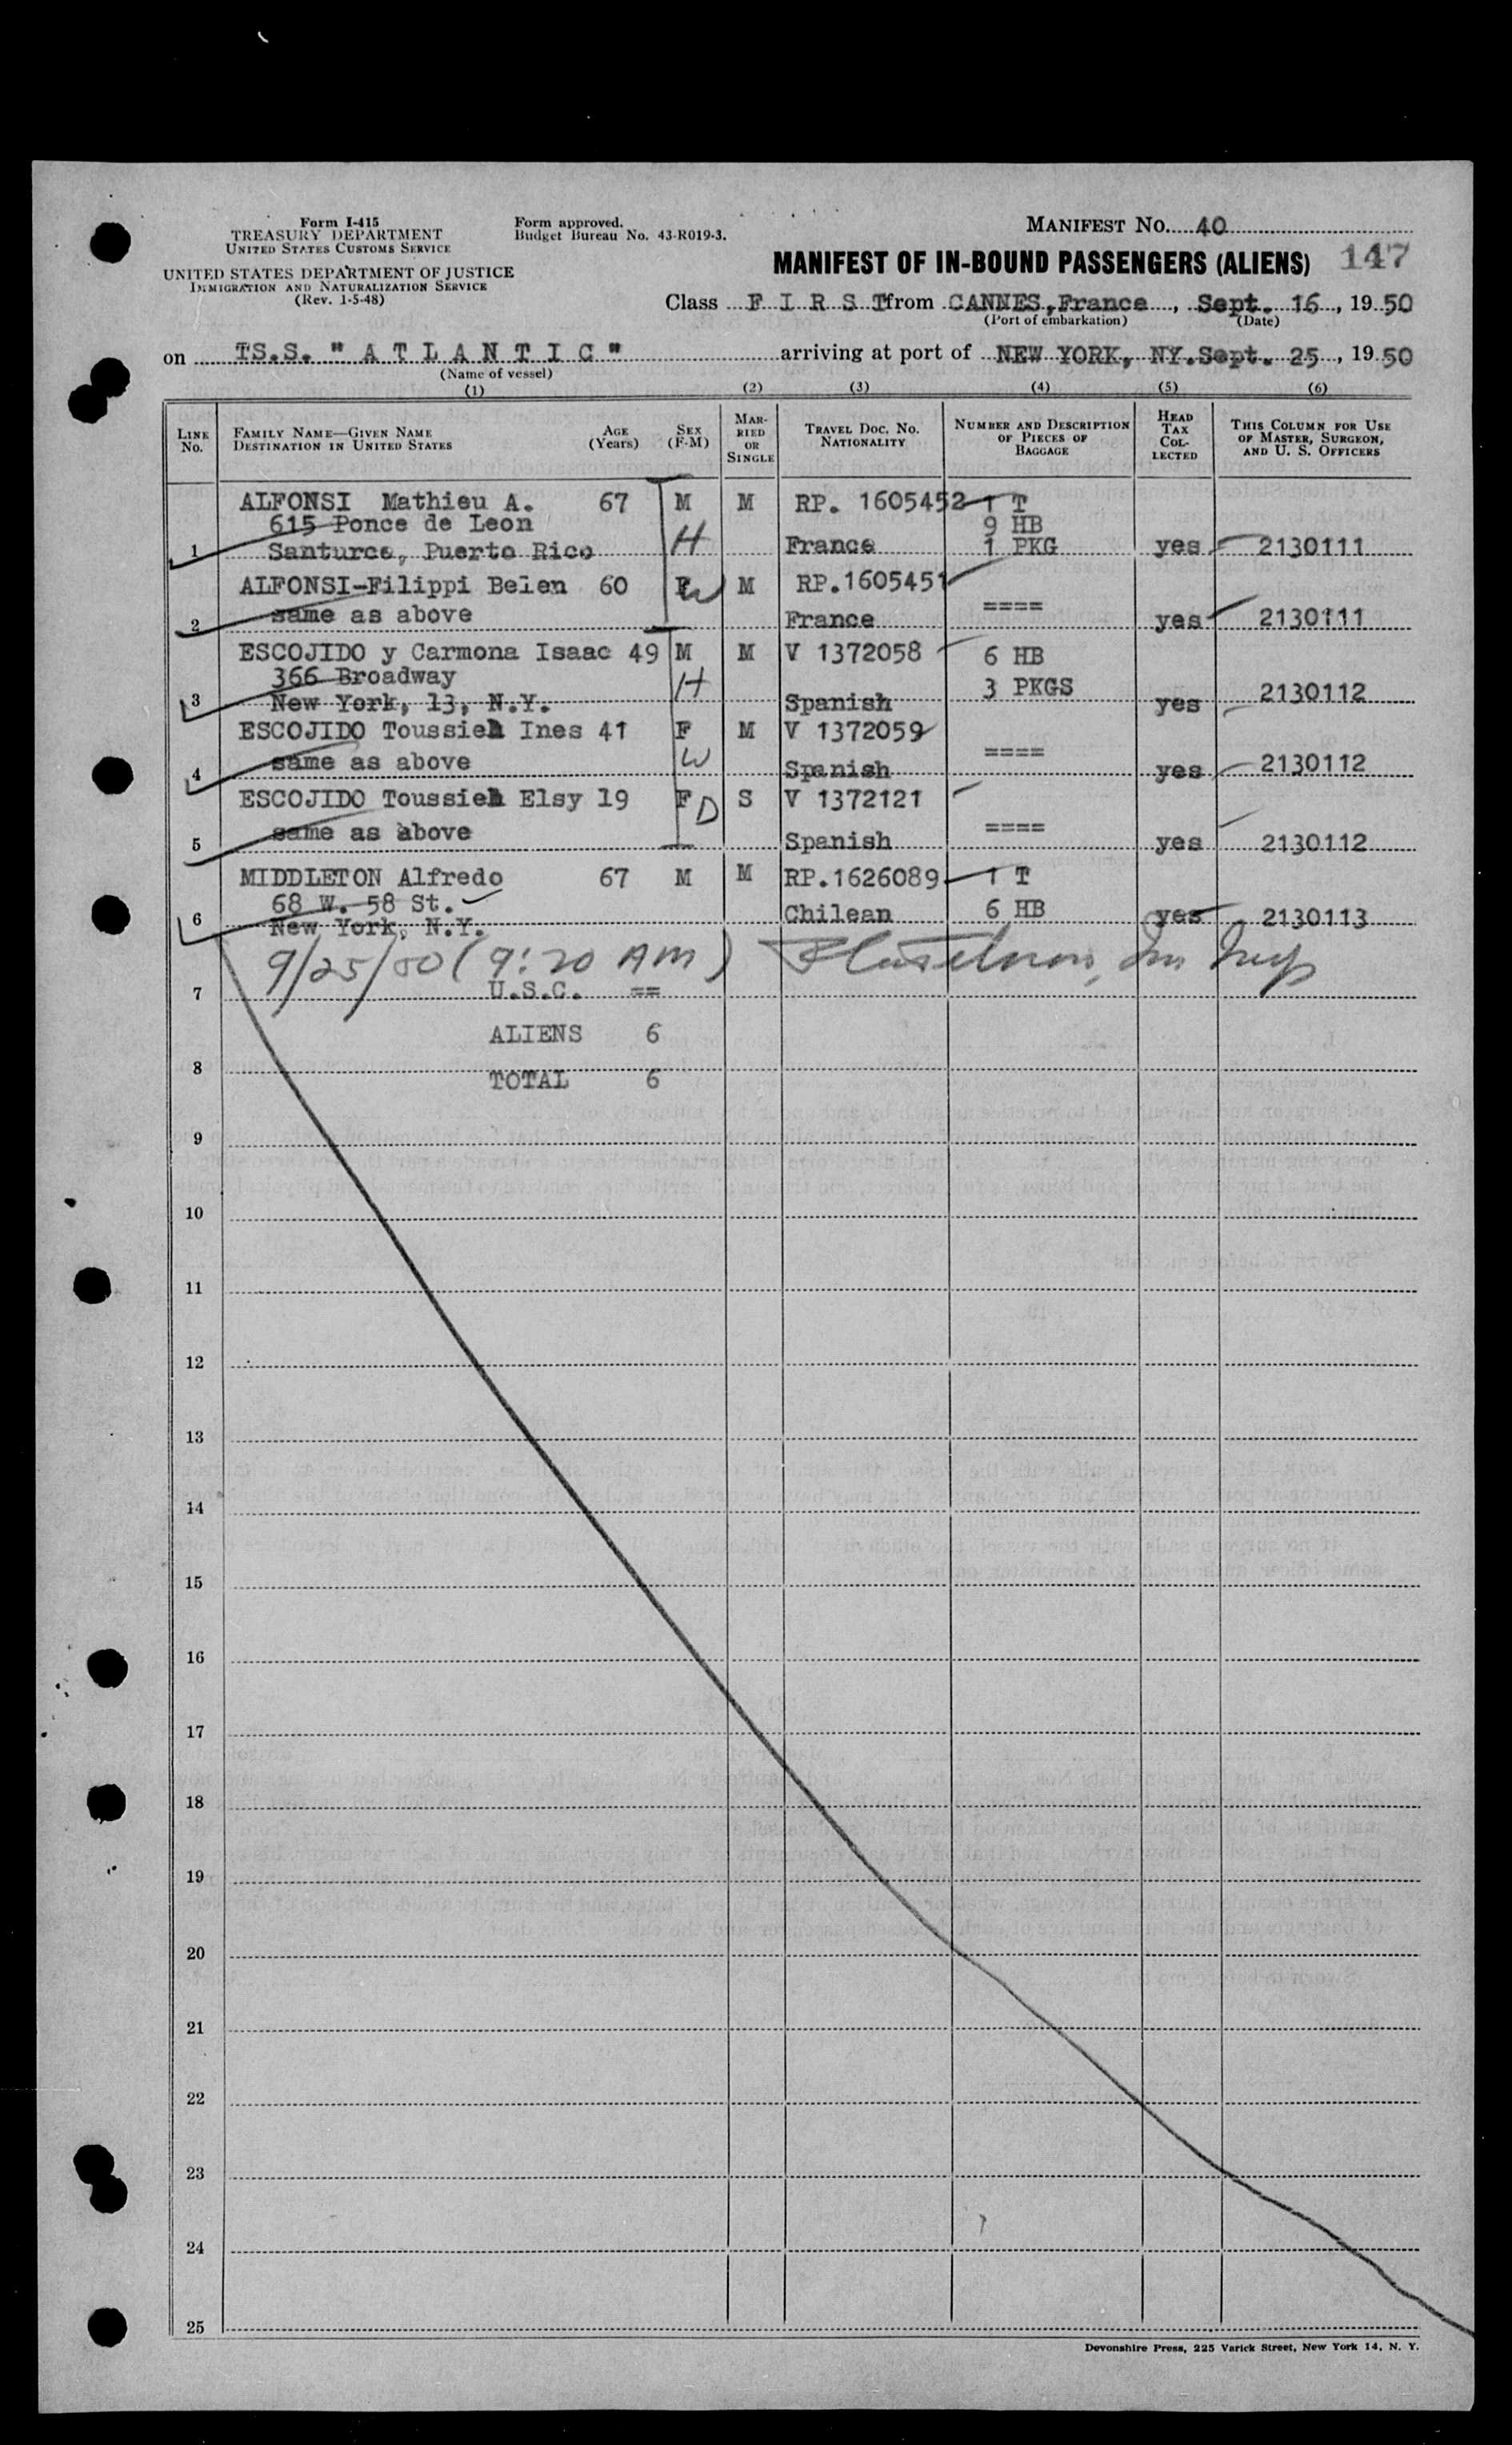 Form I-415
TREASURY DEPARTMENT
UNITED STATES CUSTOMS SERVICE
UNITED STATES DEPARTMENT OF JUSTICE
IMMIGRATION AND NATURALIZATION SERVICE
(Rev. 1-5-48)
Form approved.
Budget Bureau No. 43-R019-3.
MANIFEST NO. 40
MANIFEST OF IN-BOUND PASSENGERS (ALIENS) 147
Class F I R S T from CANNES, France, Sept. 16, 1950
(Port of embarkation) (Date)
on TS.S. "A T L A N T I C" arriving at port of NEW YORK, NY. Sept. 25, 1950
(Name of vessel)
(1) (2) (3) (4) (5) (6)
LINE NO. FAMILY NAME—GIVEN NAME DESTINATION IN UNITED STATES AGE (Years) SEX (F-M) MARRIED OR SINGLE TRAVEL DOC. NO. NATIONALITY NUMBER AND DESCRIPTION OF PIECES OF BAGGAGE HEAD TAX COLLECTED THIS COLUMN FOR USE OF MASTER, SURGEON, AND U. S. OFFICERS
ALFONSI Mathieu A. 67 M M RP. 1605452 1 T
615 Ponce de Leon H 9 HB
1 Santurce, Puerto Rico France 1 PKG yes 2130111
ALFONSI-Filippi Belen 60 F W M RP.1605451
2 same as above France ==== yes 2130111
ESCOJIDO y Carmona Isaac 49 M M V 1372058 6 HB
366 Broadway H 3 PKGS
3 New York, 13, N.Y. Spanish yes 2130112
ESCOJIDO Toussieh Ines 41 F M V 1372059
4 same as above W Spanish ==== yes 2130112
ESCOJIDO Toussieh Elsy 19 F D S V 1372121
5 same as above Spanish ==== yes 2130112
MIDDLETON Alfredo 67 M M RP.1626089 1 T
68 W. 58 St. Chilean 6 HB yes 2130113
6 New York, N.Y.
9/25/50 (9:20 AM)
7 U.S.C. ==
ALIENS 6
8
TOTAL 6
9
10
11
12
13
14
15
16
17
18
19
20
21
22
23
24
25
Devonshire Press, 225 Varick Street, New York 14, N. Y.